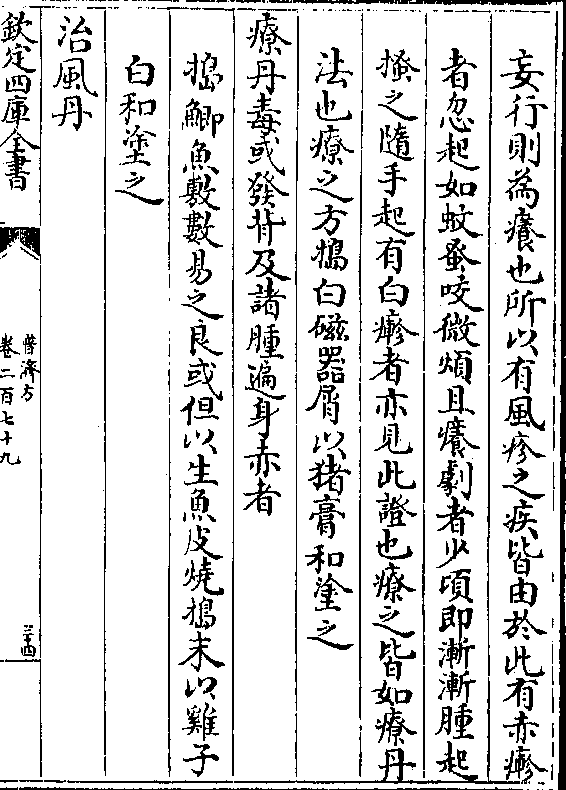 妄行則為癢也所以有風疹之疾皆由於此有赤瘮
者忽起如蚊蚤咬微煩且癢劇者少頃即漸漸腫起
搔之隨手起有白瘮者亦見此證也療之皆如療丹
法也療之方搗白磁器屑以猪膏和塗之
療丹毒或發背及諸腫遍身赤者
搗鯽魚敷數易之良或但以生魚皮燒搗末以雞子
白和塗之
治風丹
欽定四庫全書
普濟方
卷二百七十九
三十四